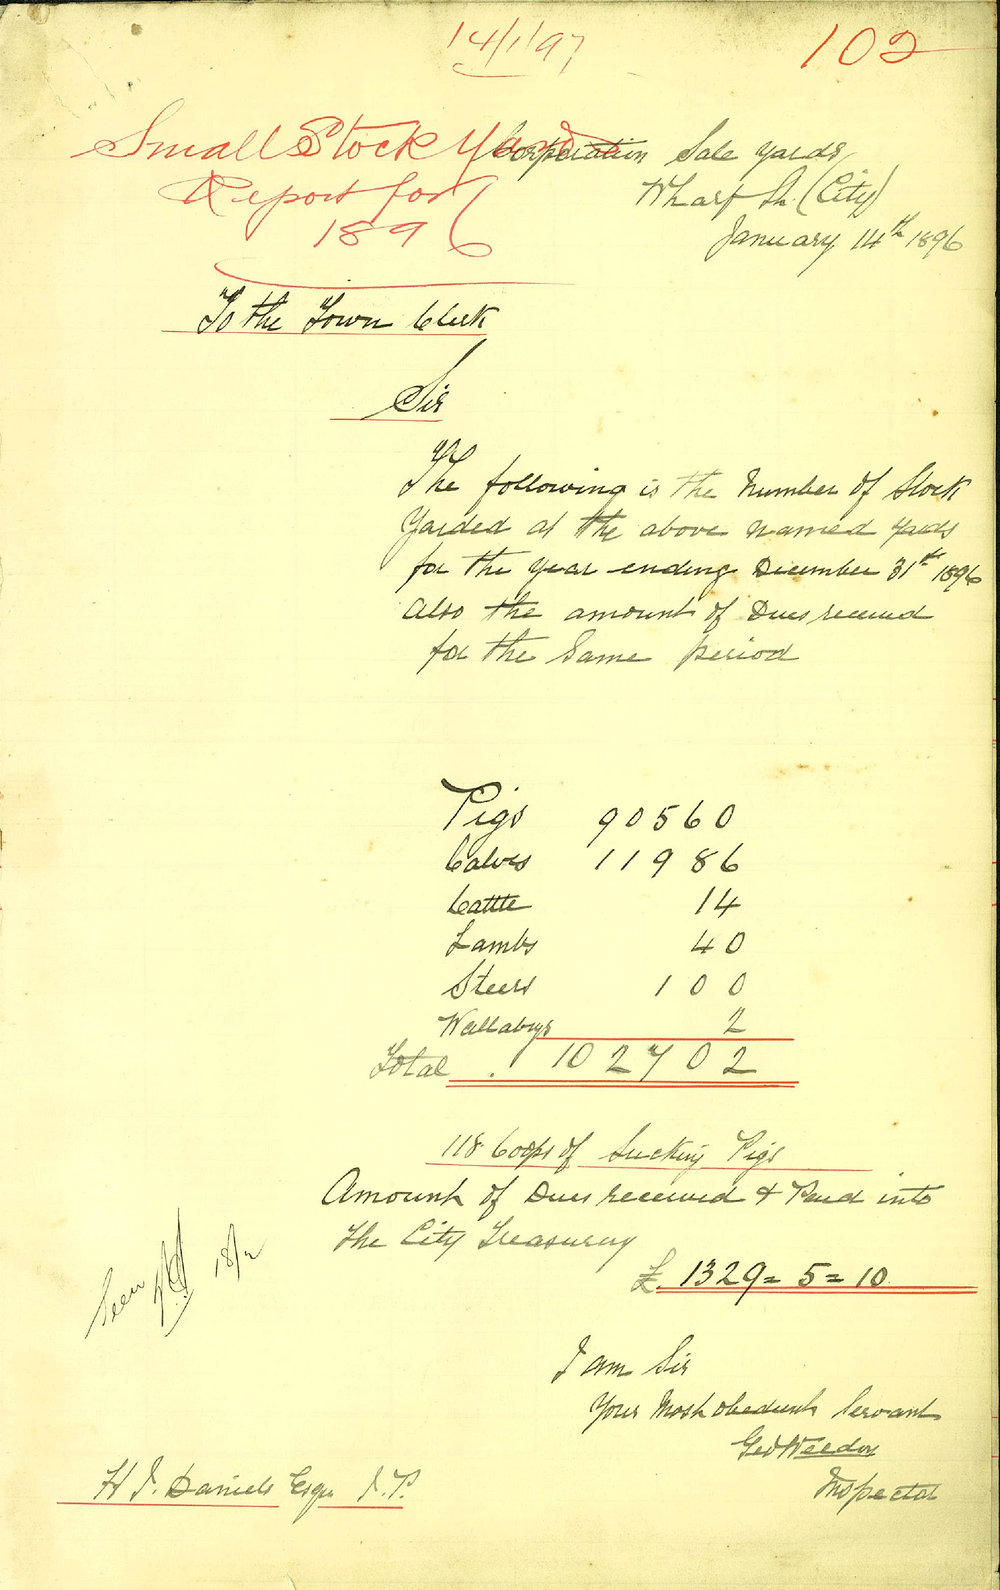 14/1/97
102
Small Stock Yards
Report for
1896
Corporation Sale Yards,
Wharf St. (City)
January 14th 1896
To the Town Clerk
Sir
The following is the Number of Stock
Yarded at the above named yards
for the year ending December 31st 1896
also the amount of Dues received
for the Same period
Pigs 90560
Calves 11986
Cattle 14
Lambs 40
Steers 100
Wallabys 2
Total . 102702
118 Coops of Sucking Pigs
Amount of Dues received & Paid into
the City Treasury
£ 1329 = 5 = 10
Seen
18/2
I am Sir
Your Most obedient Servant
Geo Weedon
Inspector
H J. Daniels Esqr J.P.